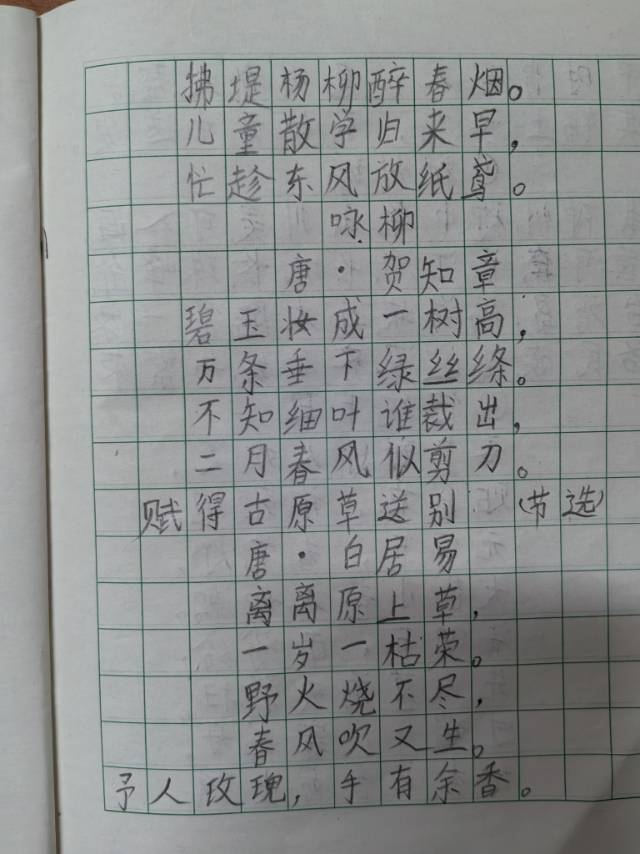 拂堤杨柳醉春烟。
儿童散学归来早，
忙趁东风放纸鸢。
咏柳
唐·贺知章
碧玉妆成一树高，
万条垂下绿丝绦。
不知细叶谁裁出，
二月春风似剪刀。
赋得古原草送别（节选）
唐·白居易
离离原上草，
一岁一枯荣。
野火烧不尽，
春风吹又生。
予人玫瑰，手有余香。